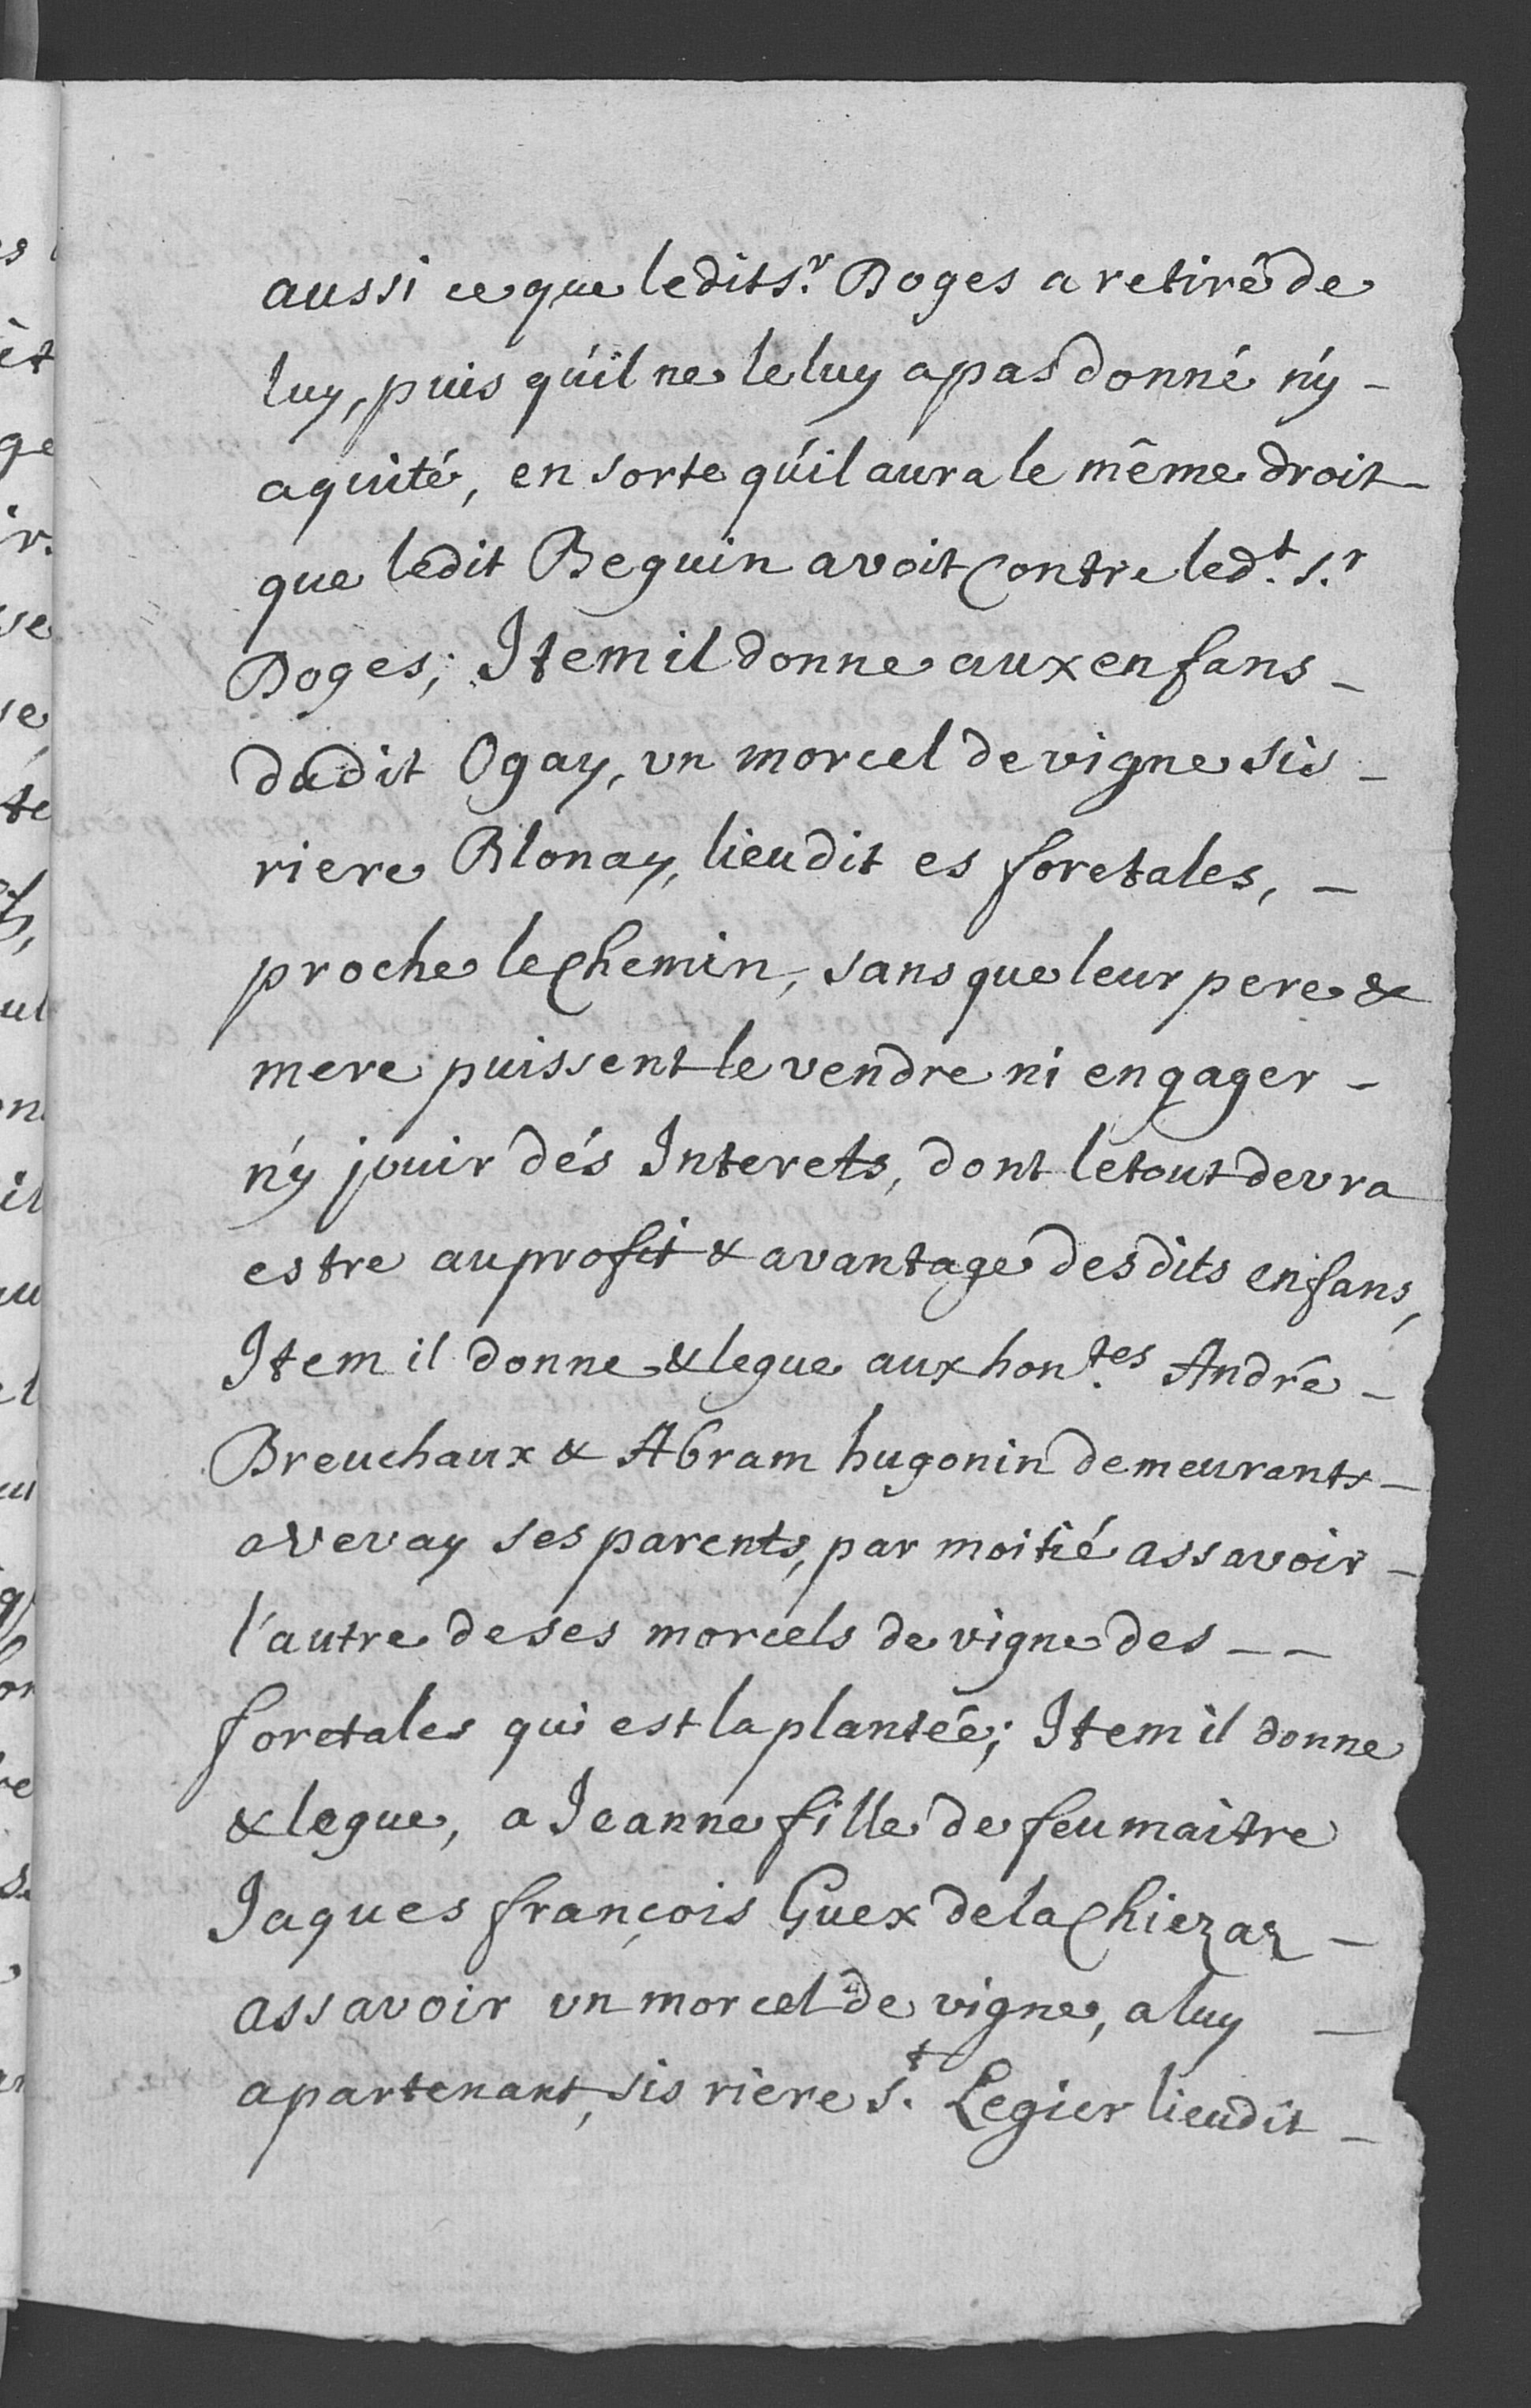 aussi ce que ledit s.r Doges a retiré de
luy, puis qu'il ne le luy a pas donné n'y -
aquité, en sorte qu'il aura le même droit -
que ledit Beguin avoit Contre led.t s.r
Doges; Item il donne aux enfans -
dudit Ogay, un morcel de vigne sis -
riere Blonay, lieudit es foretales, -
proche le Chemin, sans que leur pere &
mere puissent le vendre ni engager -
n'y jouir dés Interets, dont le tout devra
estre au profit & avantage desdits enfans,
Item il donne & legue aux hon.tes André -
Breuchaux & Abram hugonin demeurants -
a Vevay ses parents, par moitié assavoir -
l'autre de ses morcels de vigne des - -
foretales qui est la plantée; Item il donne
& legue, a Jeanne fille de feu maitre
Jaques françois Guex de la Chiezaz -
assavoir un morcel de vigne, a luy -
apartenant, sis riere s.t Legier lieudit -